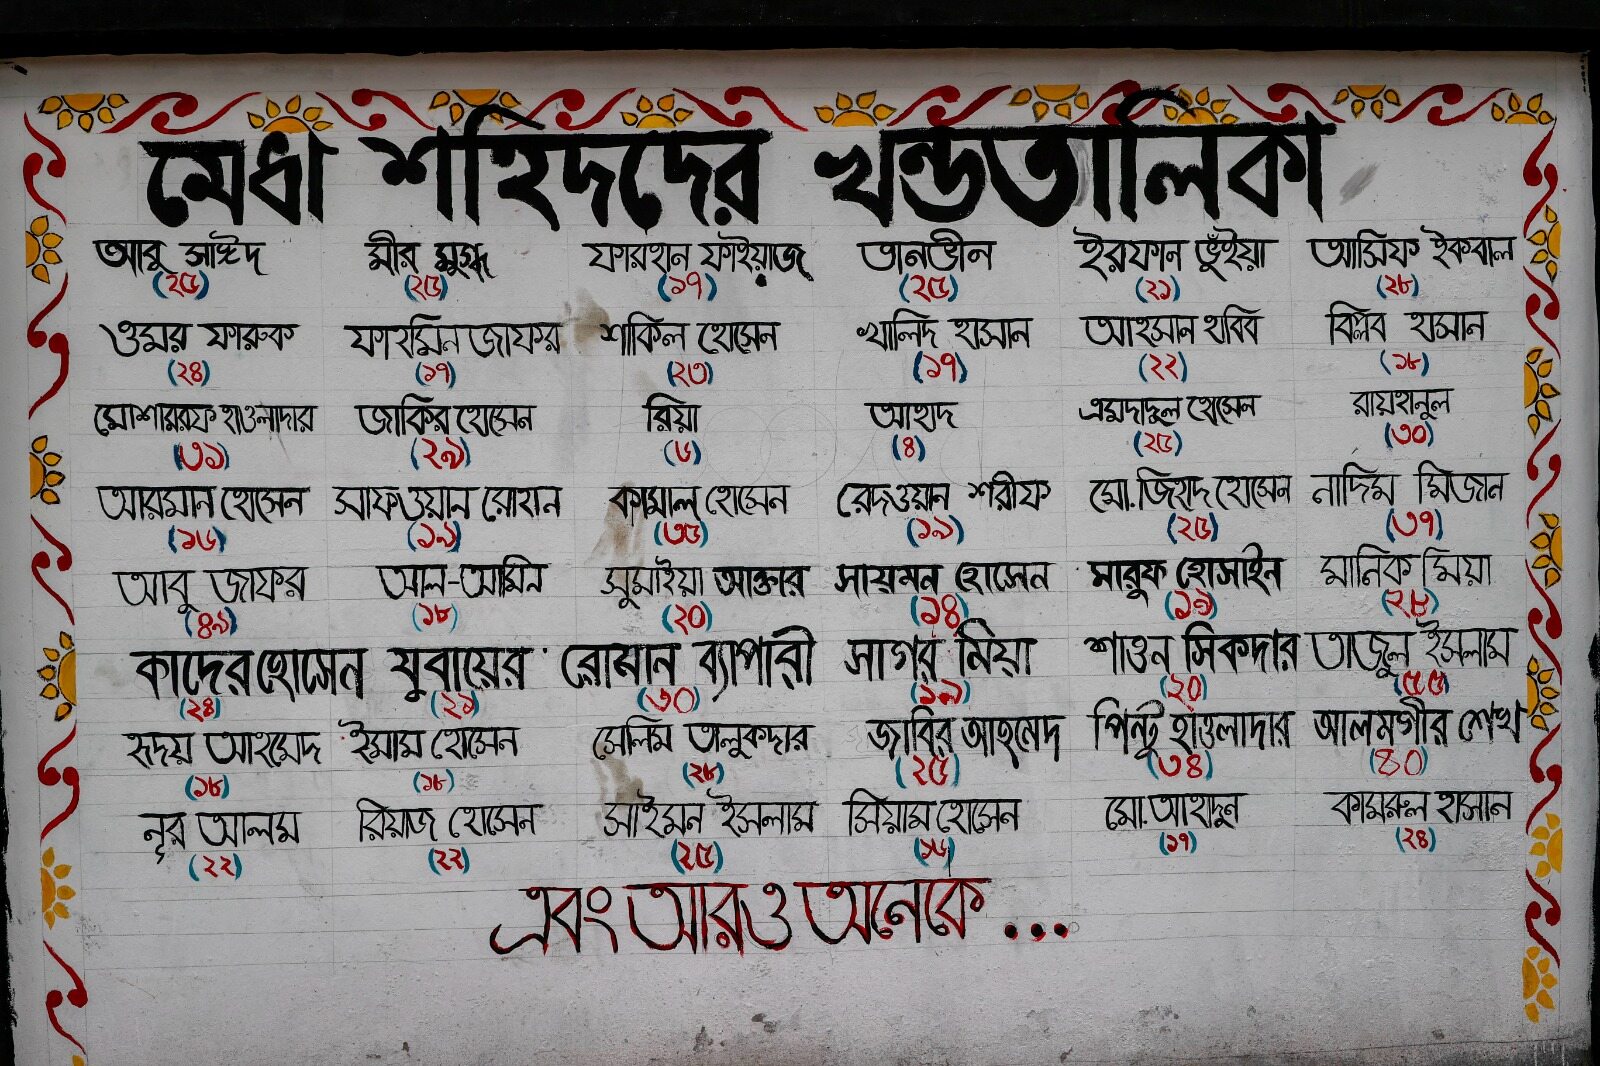 মেধা শহিদদের খন্ডতালিকা
আবু সাঈদ মীর মুগ্ধ ফারহান ফাইয়াজ তানভীন ইরফান ভুঁইয়া আসিফ ইকবাল
(২৫) (২৫) (১৭) (২৫) (২১) (২৮)
ওমর ফারুক ফাহমিন জাফর শাকিল হোসেন খালিদ হাসান আহসান হাবিব বিপ্লব হাসান
(২৪) (১৭) (২৩) (১৭) (২২) (১৮)
মোশাররফ হাওলাদার জাকির হোসেন রিয়া আহাদ এমদাদুল হোসেন রায়হানুল
(৩১) (২৯) (৬) (৪) (২৫) (৩০)
আরমান হোসেন সাফওয়ান রোহান কামাল হোসেন রেদওয়ান শরীফ মো.জিহাদ হোসেন নাদিম মিজান
(১৬) (১৯) (৩৫) (১৯) (২৫) (৩৭)
আবু জাফর আল-আমিন সুমাইয়া আক্তার সায়মন হোসেন মারুফ হোসাইন মানিক মিয়া
(৪৯) (১৮) (২০) (১৪) (১৯) (২৮)
কাদের হোসেন যুবায়ের রোমান ব্যাপারী সাগর মিয়া শাওন সিকদার তাজুল ইসলাম
(২৪) (২১) (৩০) (১৯) (২০) (৫৫)
হৃদয় আহমেদ ইমাম হোসেন সেলিম তালুকদার জাবির আহমেদ পিন্টু হাওলাদার আলমগীর শেখ
(১৮) (১৮) (২৮) (২৫) (৩৪) (৪০)
নূর আলম রিয়াজ হোসেন সাইমন ইসলাম সিয়াম হোসেন মো.আহাদুন কামরুল হাসান
(২২) (২২) (২৫) (১৬) (১৭) (২৪)
এবং আরও অনেকে ...